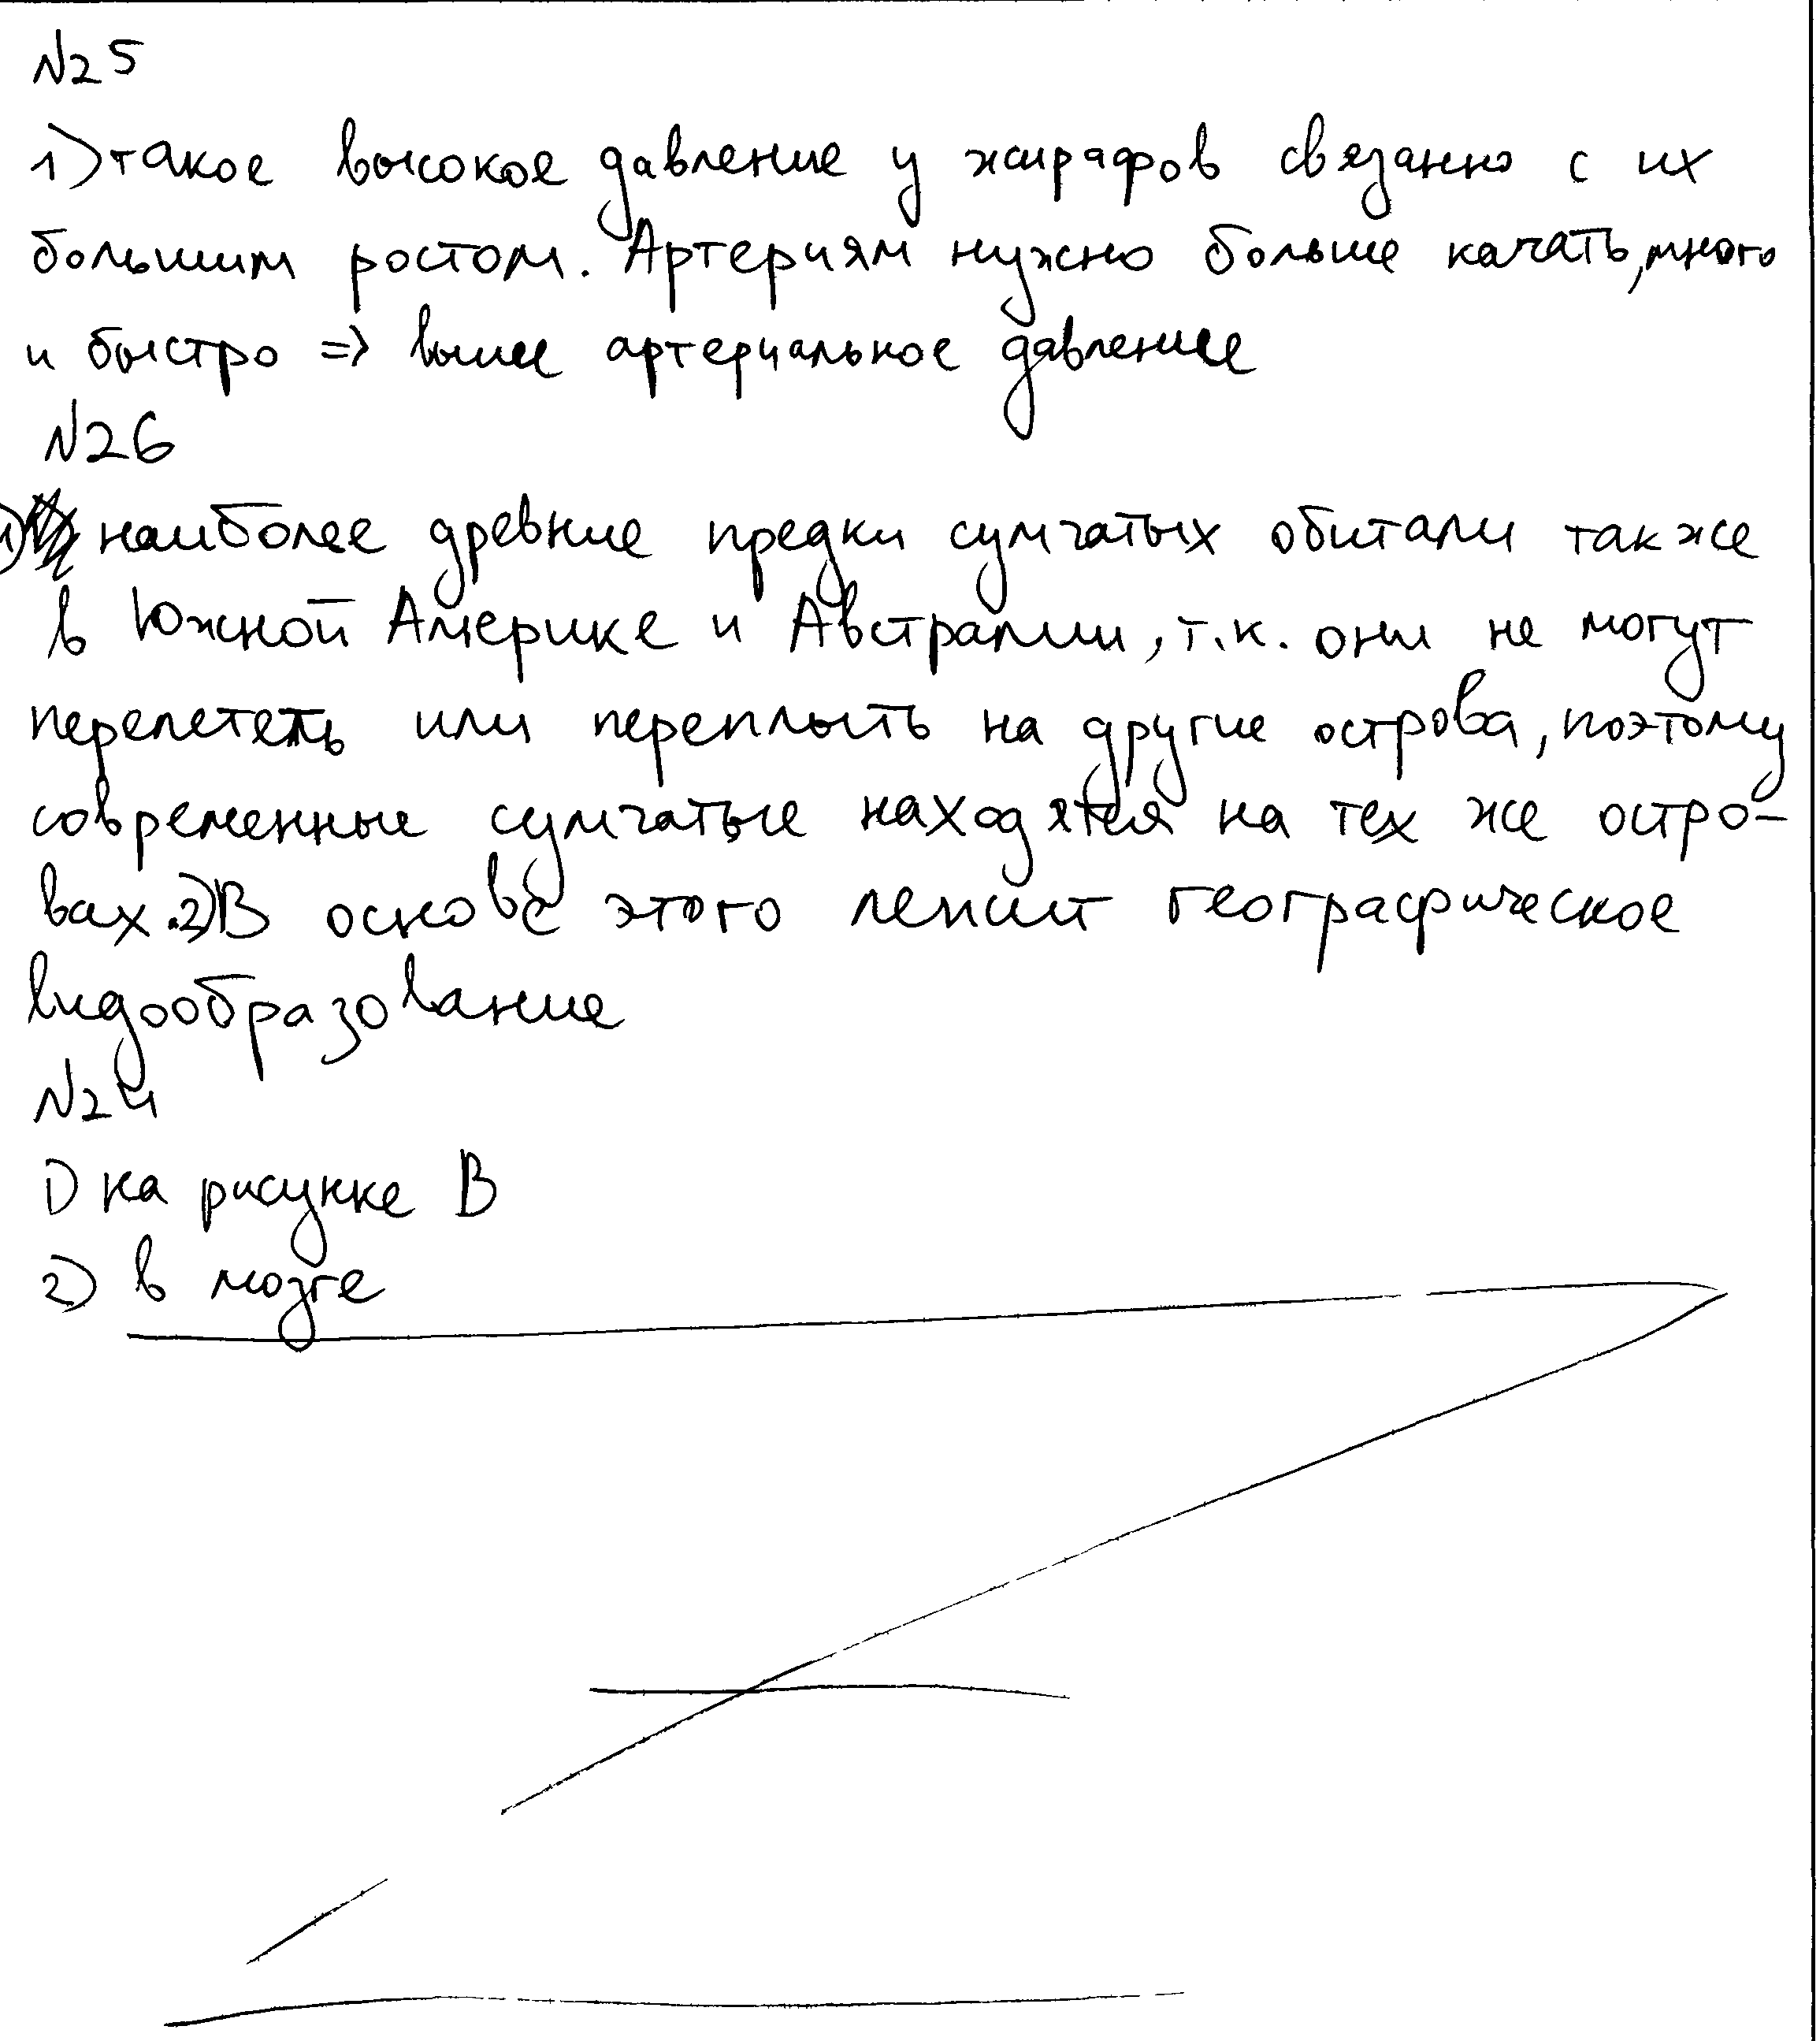 №25
1) такое высокое давление у жирафов связанно с их
большим ростом. Артериям нужно больше качать, много
и быстро => выше артериальное давление
№26
1) наиболее древние предки сумчатых обитали также
в Южной Америке и Австралии, т.к. они не могут
перелететь или переплыть на другие острова, поэтому
современные сумчатые находятся на тех же остро-
вах. 2) В основе этого лежит географическое
видообразование
№24
1) на рисунке В
2) в мозге